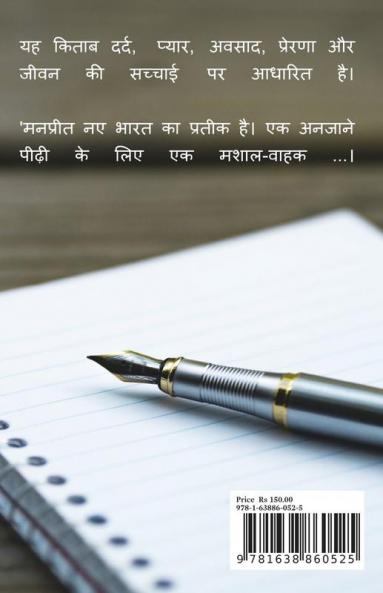 यह किताब दर्द, प्यार, अवसाद, प्रेरणा और
जीवन की सच्चाई पर आधारित है।
'मनप्रीत नए भारत का प्रतीक है। एक अनजाने
पीढ़ी के लिए एक मशाल-वाहक ...।
Price Rs 150.00
978-1-63886-052-5
9 781638 860525